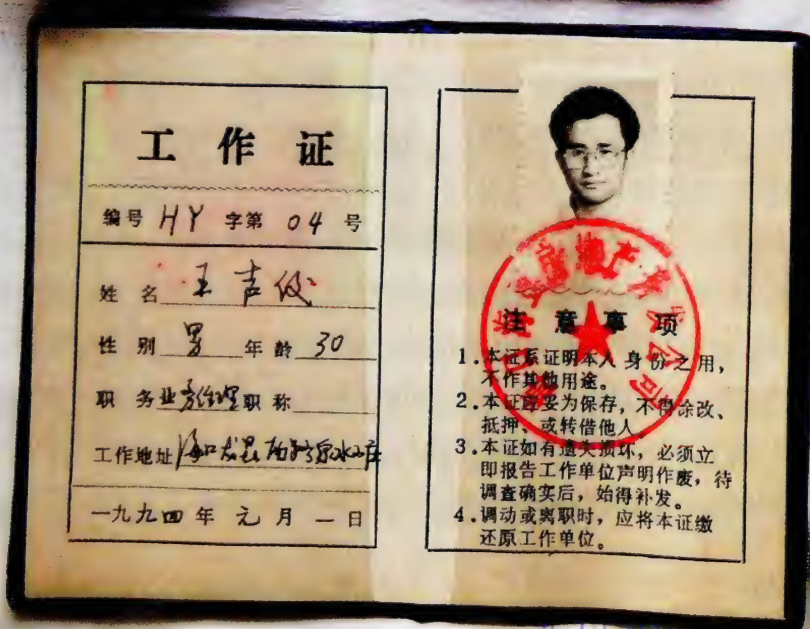 工作证
编号 HY 字第 04 号
姓名 王声
性别 男 年龄 30
职务 业务经理 职称
工作地址 海口龙昆南
一九九四年元月一日
房地产开发公司
注意事项
1.本证系证明本人身份之用,
不作其他用途。
2.本证应妥为保存,不得涂改、
抵押、或转借他人
3.本证如有遗失损坏,必须立
即报告工作单位声明作废,待
调查确实后,始得补发。
4.调动或离职时,应将本证缴
还原工作单位。